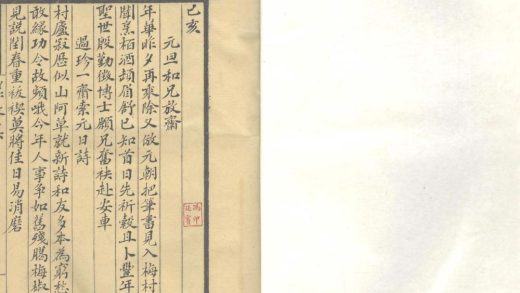 己亥
元旦和兄放齋
年華昨夕再乘除又啟元朝把筆書見入梅村
栢酒頰眉舒已知首日先祈穀且卜豐年
聖世殷勤徵博士願兄奮袂赴安車
過珍一齋索元日詩
村廬寂歷似山阿草就新詩和友多本為窮愁
敢緣功令故頻哦今年人事爭如舊殘臘梅椒
見說閏春重祓禊莫將佳日易消磨